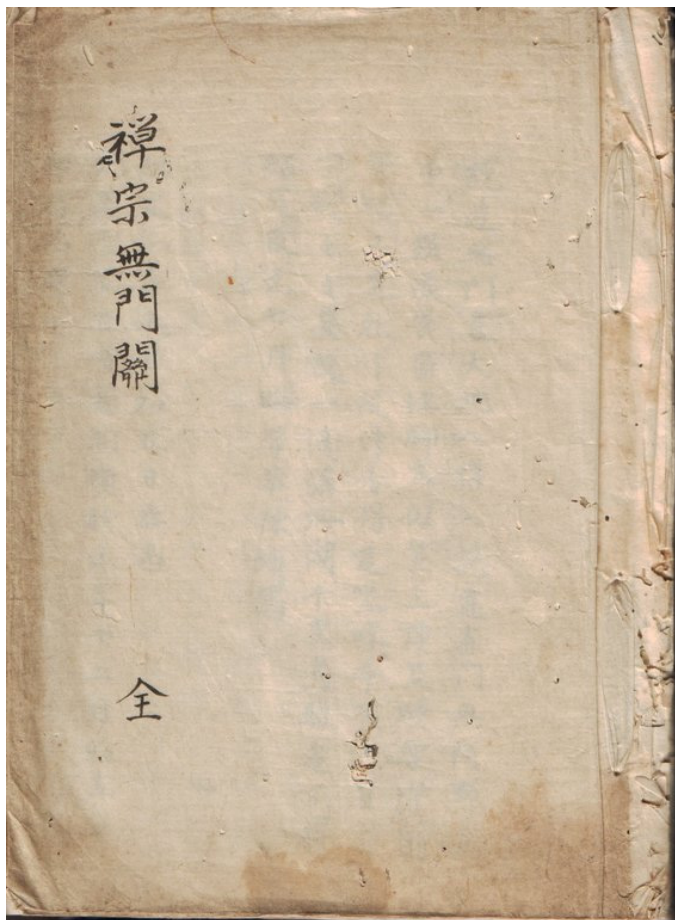 禅宗無門關
全